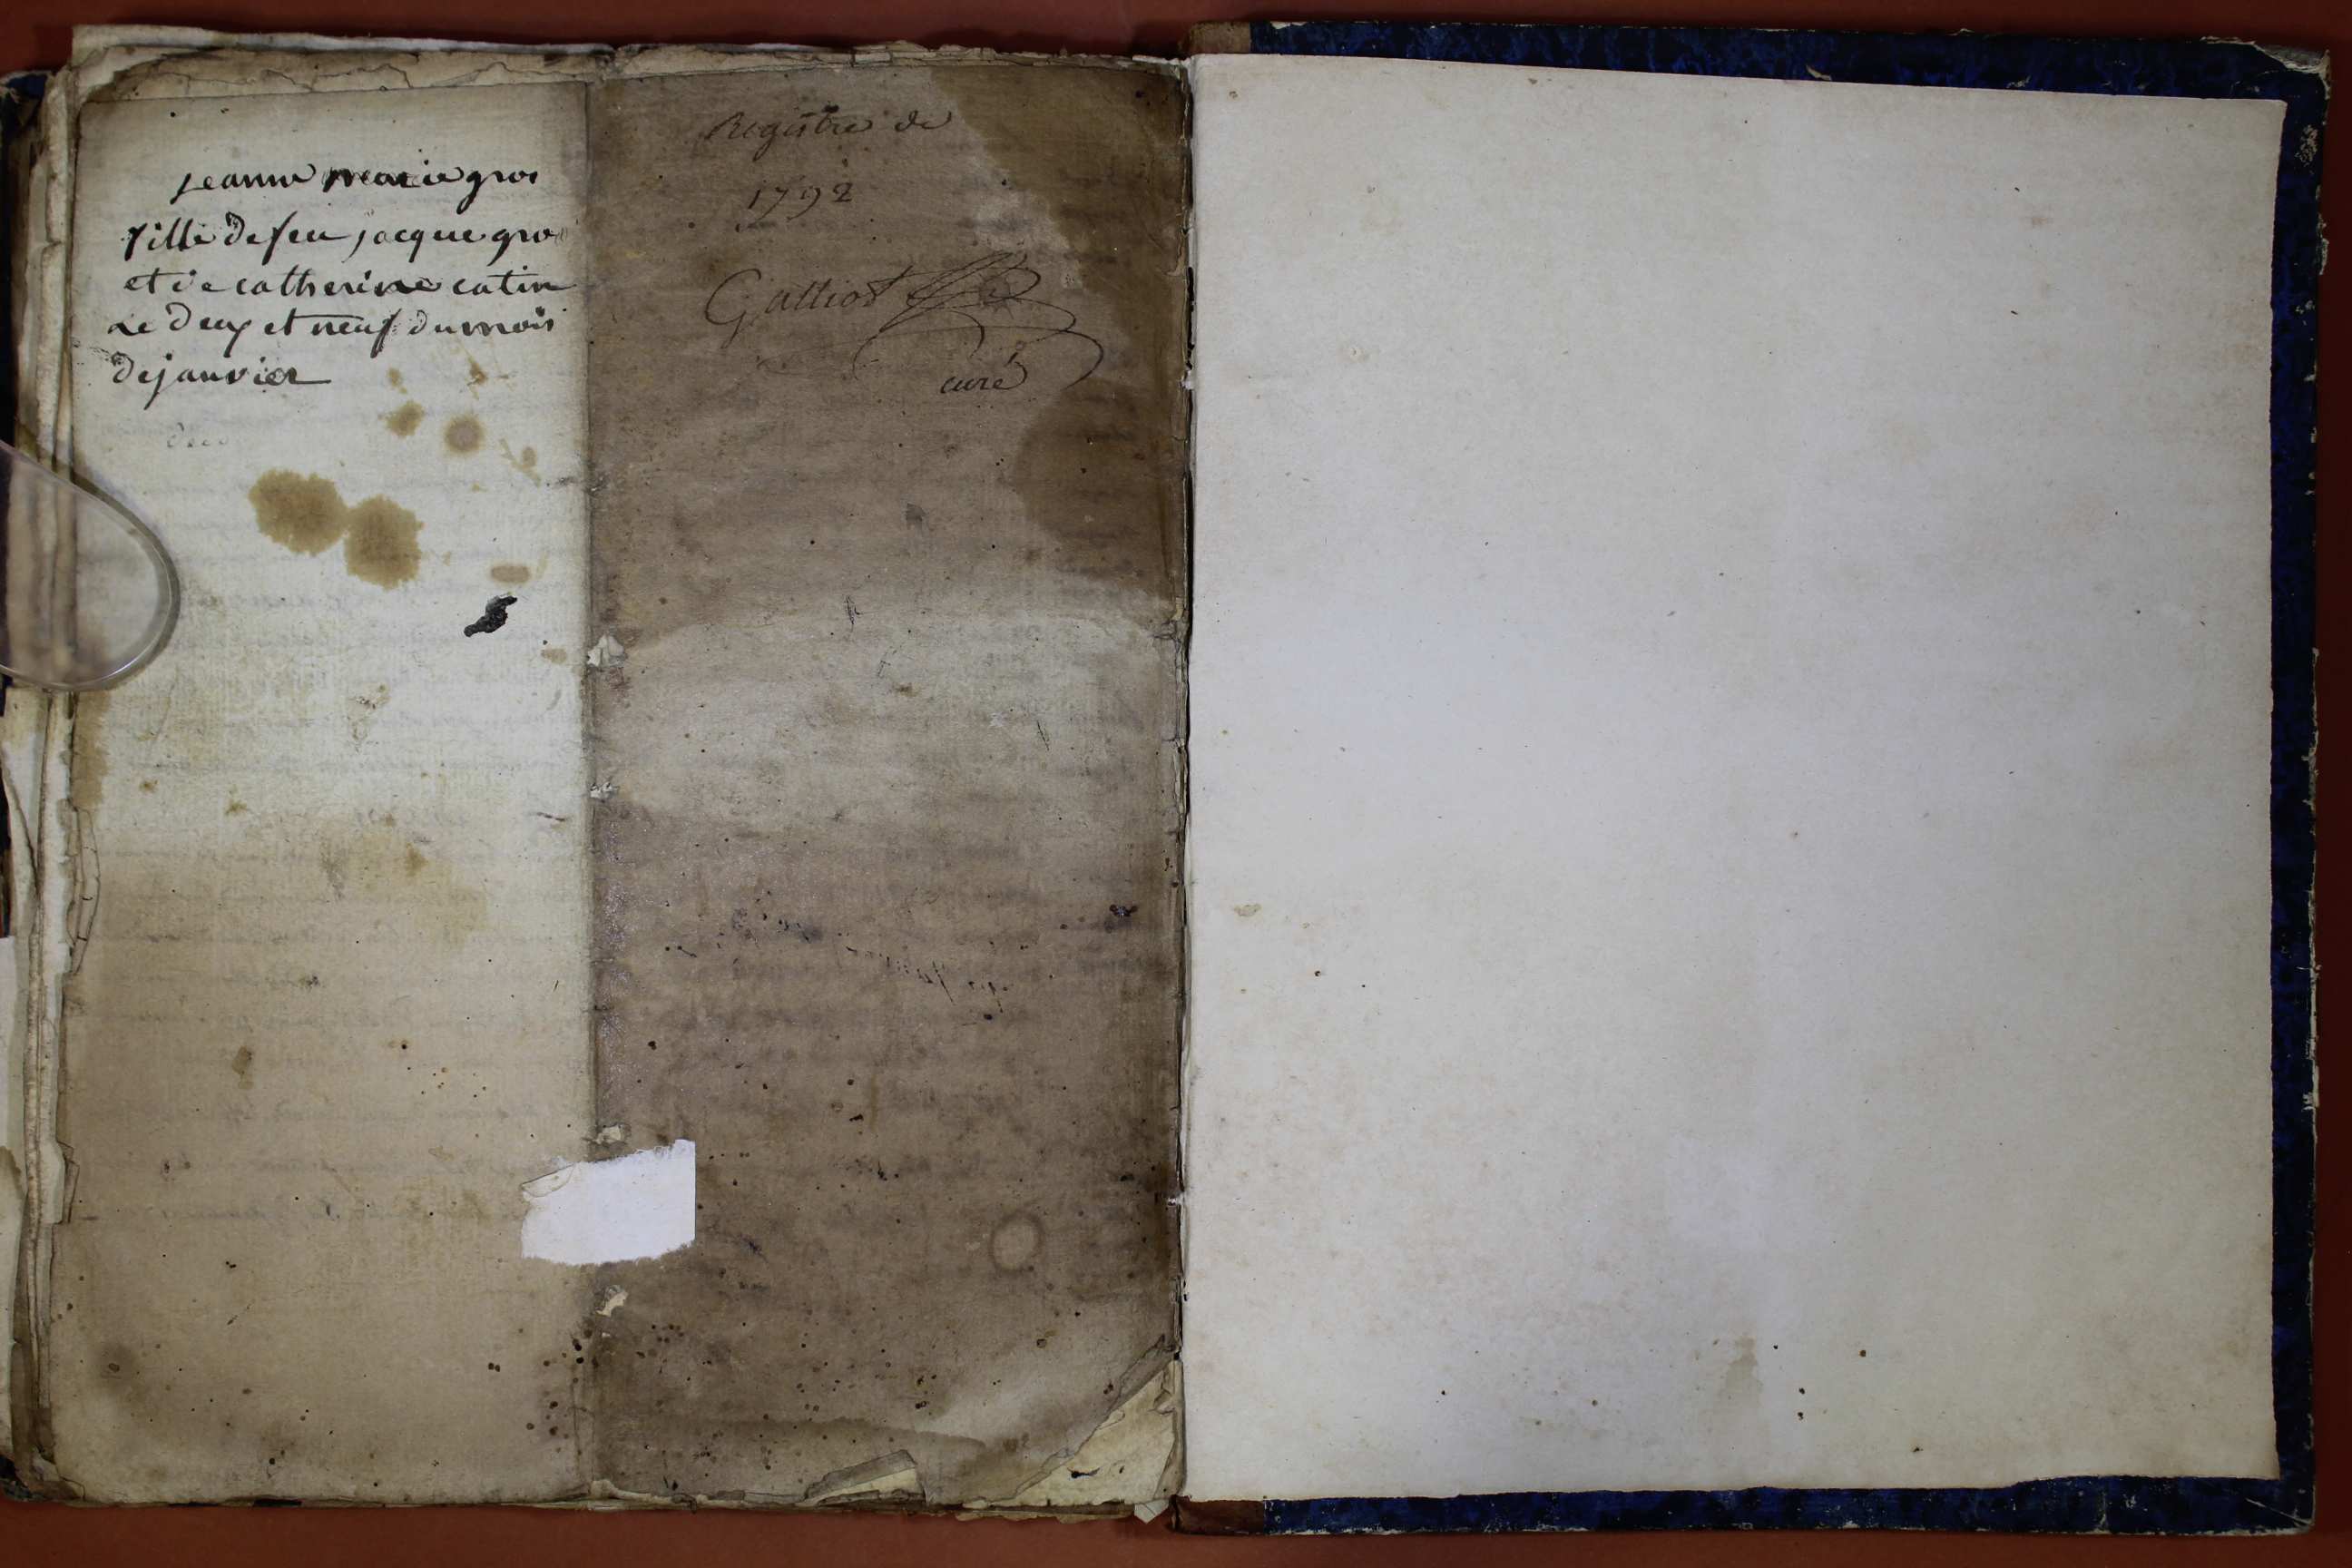 jeanne marie gros
fille de feu jacque gros
et de catherine catin
Le deux et neuf du mois
de janvier
Registre de
1792
Galliot
curé